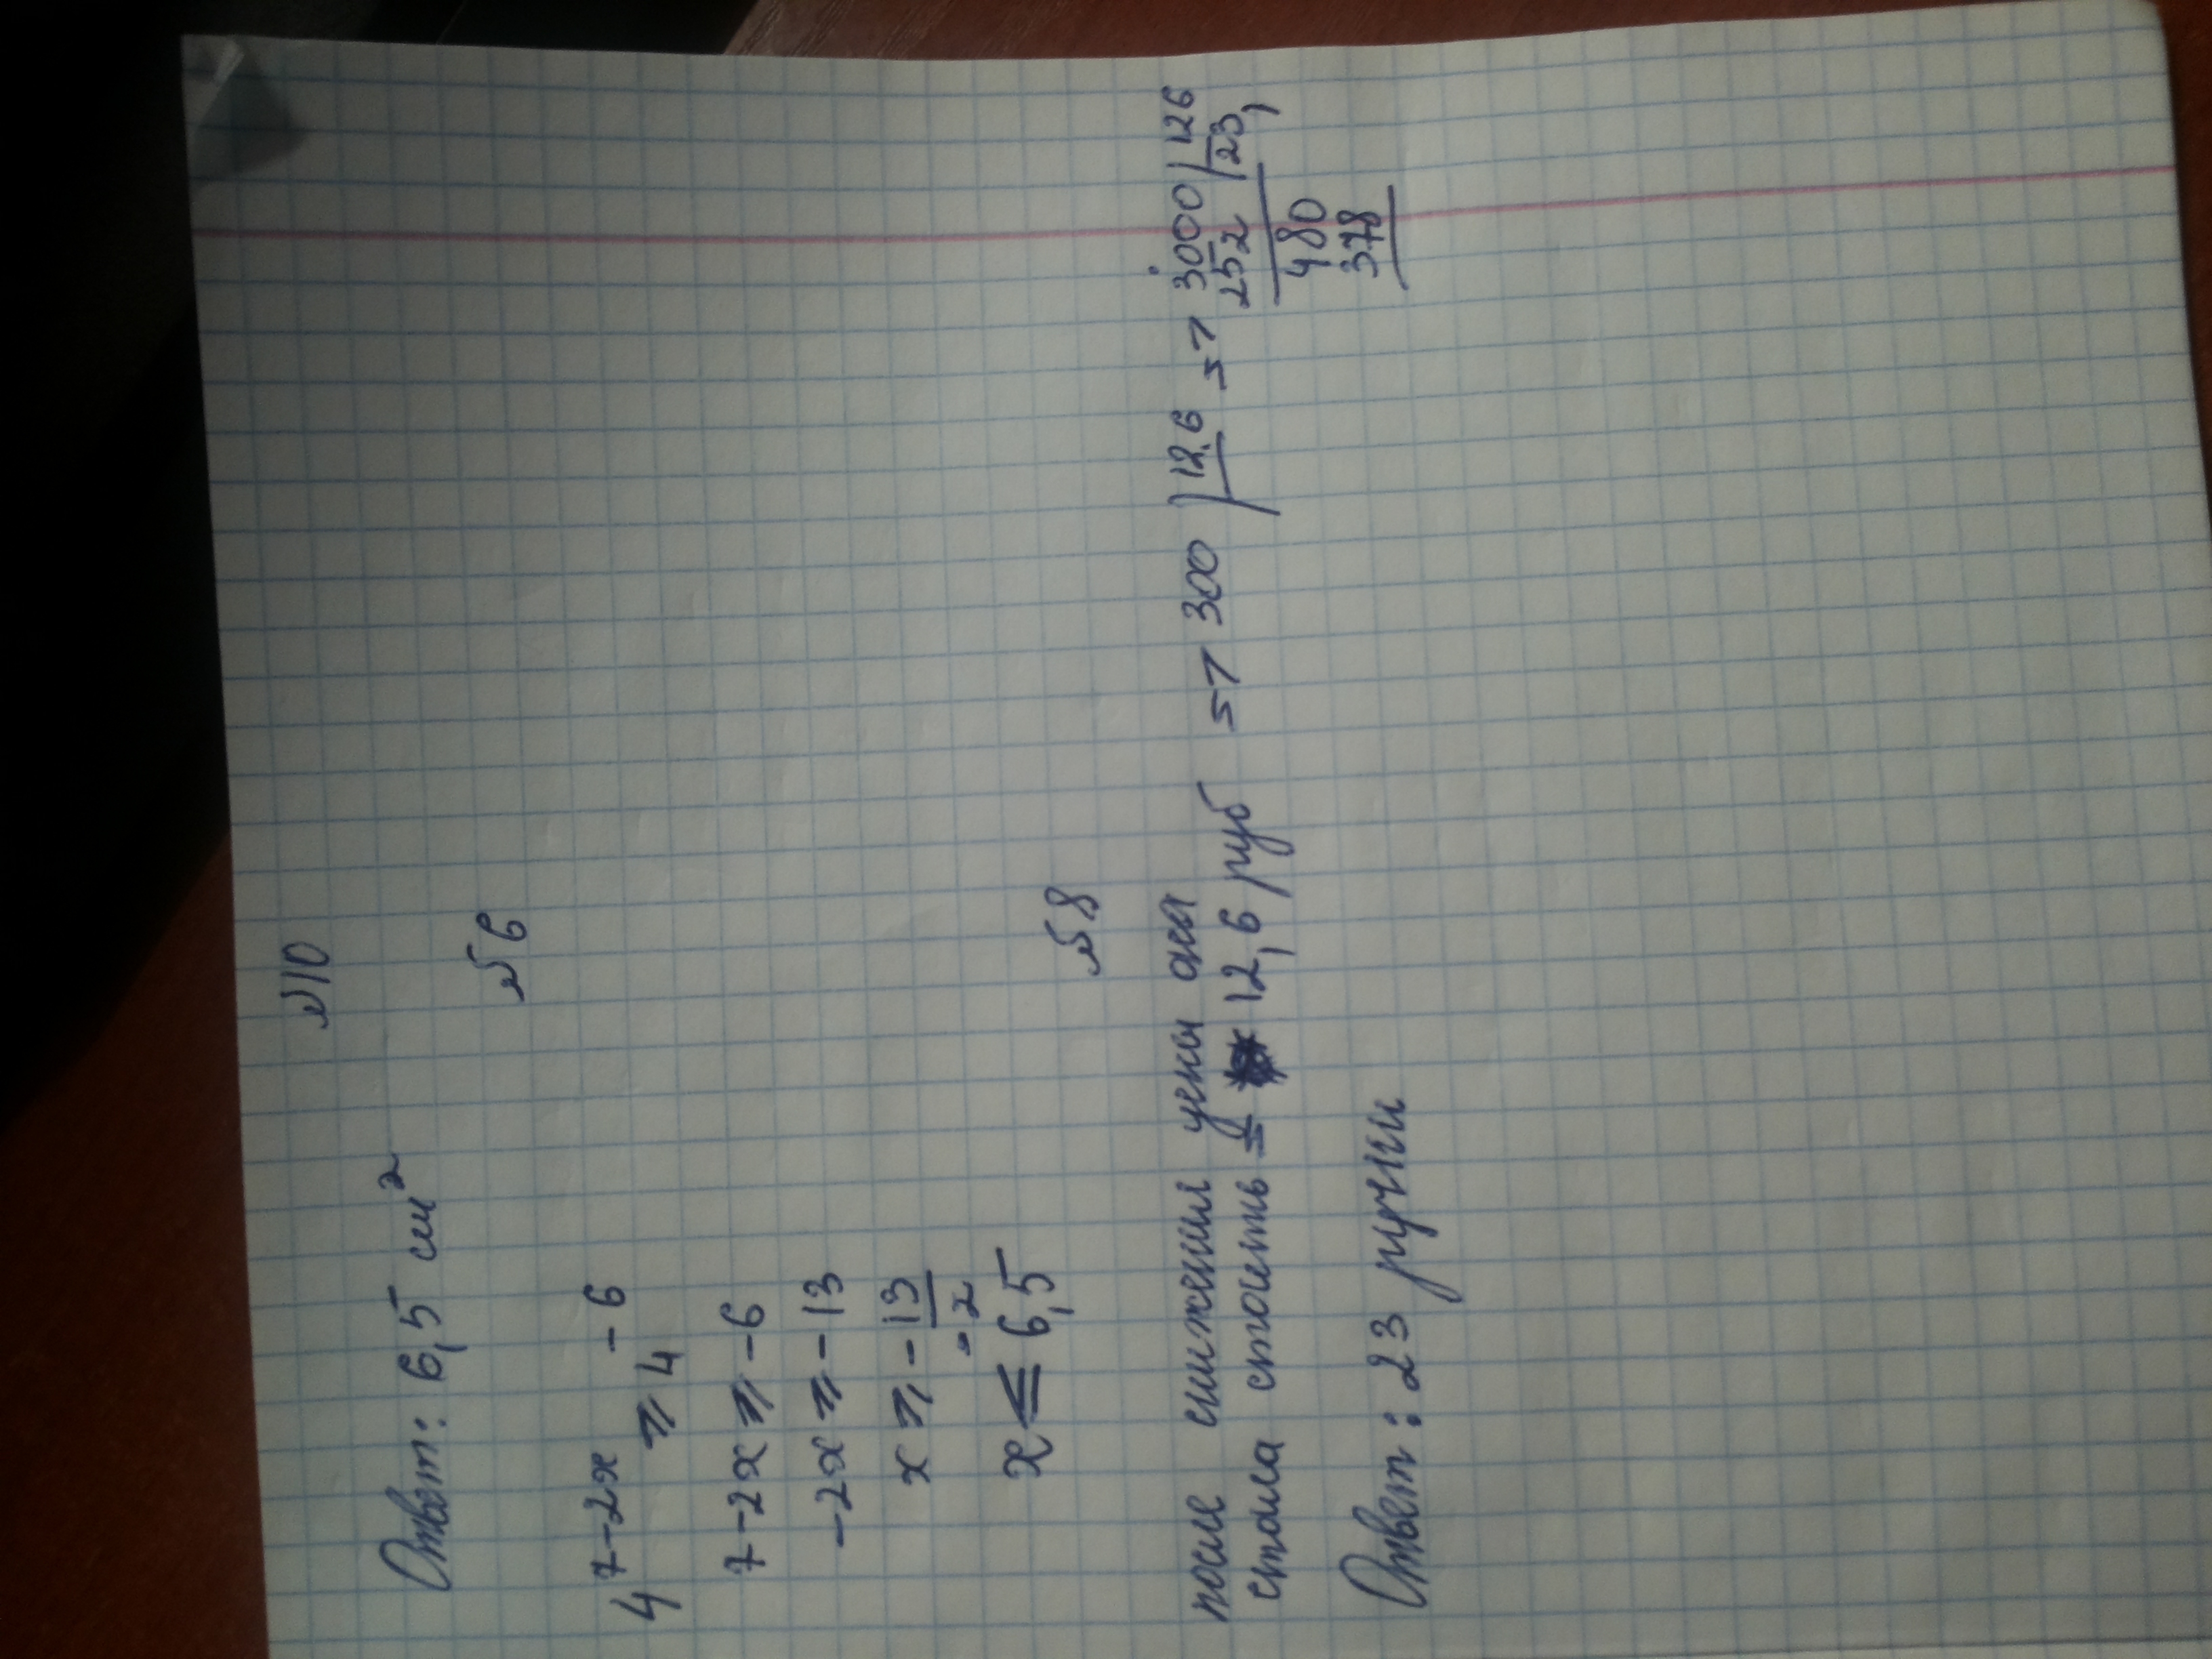 №10
Ответ: 6,5 см²
№6
4^(7-2x) ⩾ 4^(-6)
7-2x ⩾ -6
-2x ⩾ -13
x ⩾ -13/-2
x ≤ 6,5
№8
после снижения цены она
стала стоить = 12,6 руб => 300 | 12,6 => 3000 | 126
252 23,
480
378
Ответ: 23 ручки